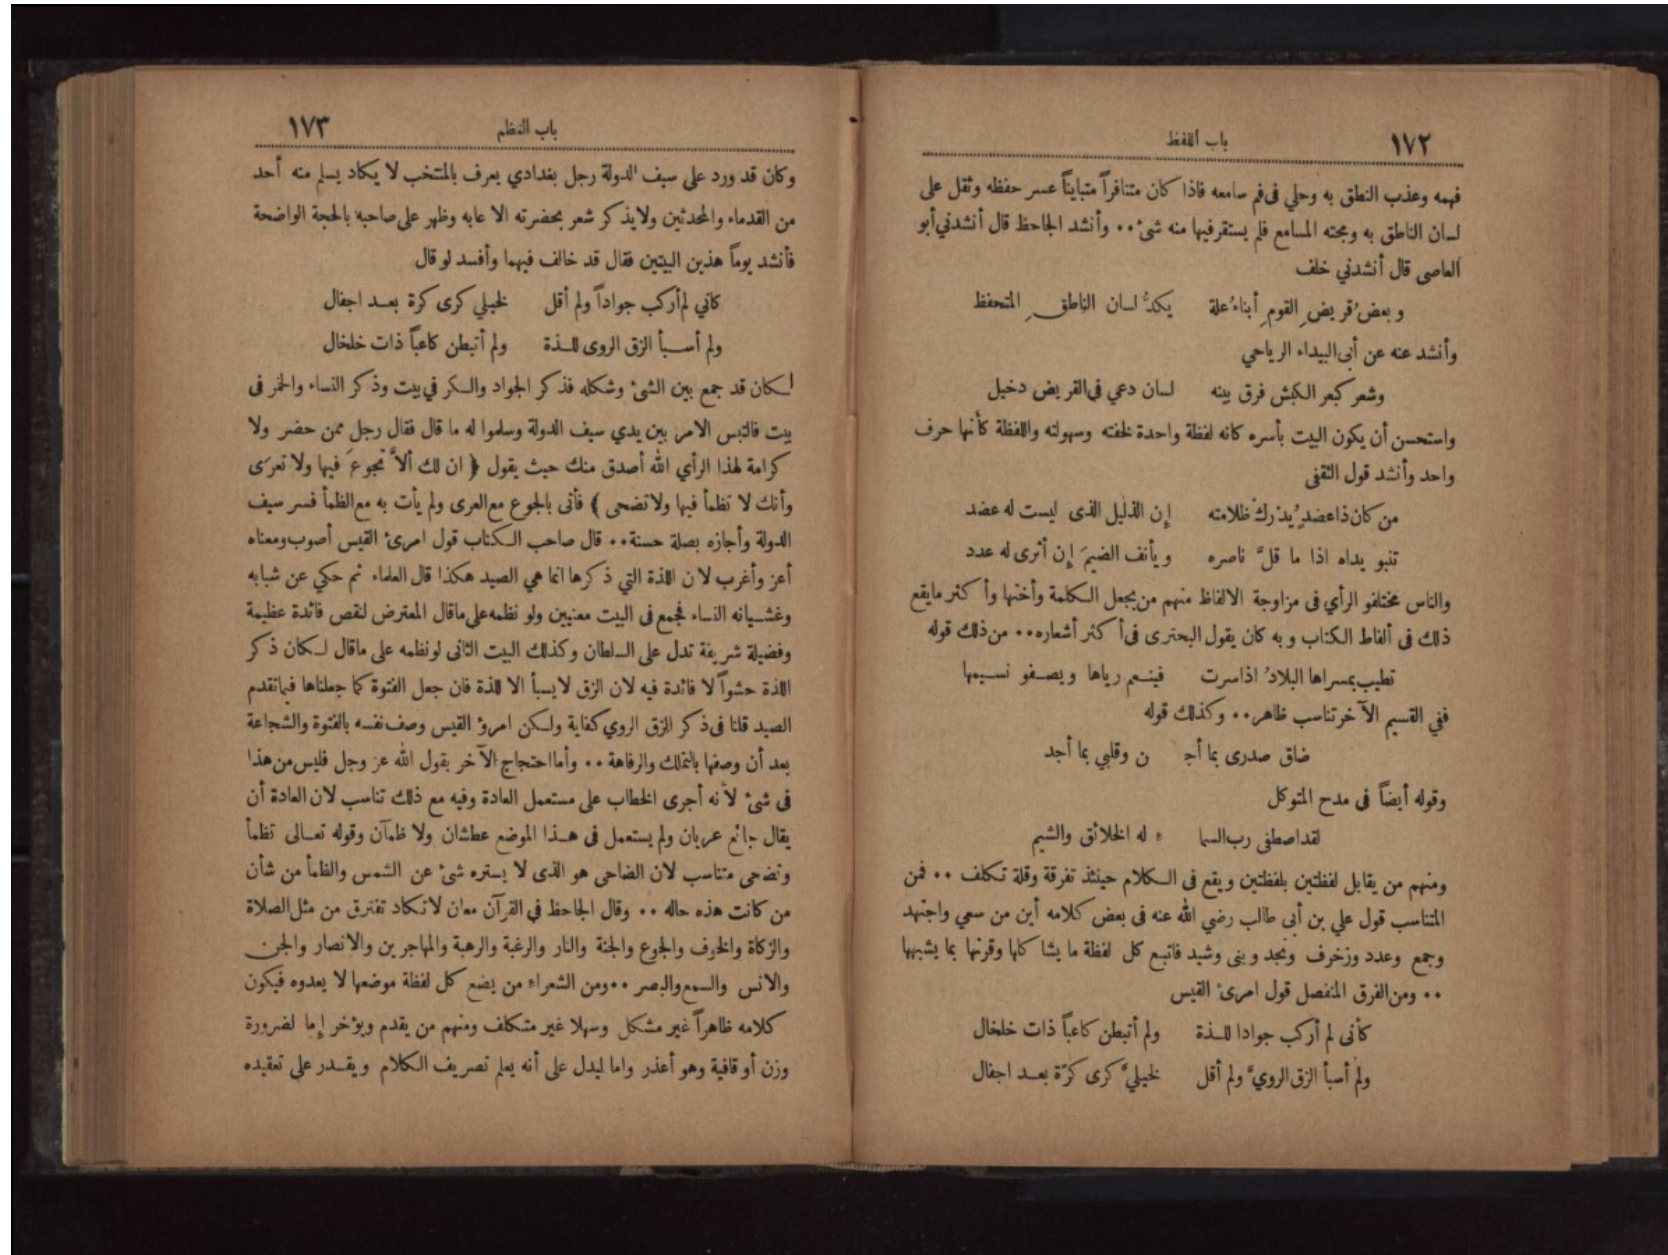 ١٧٢
باب اللفظ
فهمه وعذب النطق به وحلي فى فم سامعه فاذا كان متنافراً متبايناً عسر حفظه وثقل على
لسان الناطق به ومجته المسامع فلم يستقر فيها منه شئ ٠٠ وأنشد الجاحظ قال أنشدني أبو
العاصى قال أنشدني خلف
وبعضُ قريضِ القومِ أبناءُ علة يكدُّ لسان الناطقِ المتحفظ
وأنشد عنه عن أبى البيداء الرياحي
وشعر كبعر الكبش فرق بينه لسان دعي في القريض دخيل
واستحسن أن يكون البيت بأسره كانه لفظة واحدة لخفته وسهولته واللفظة كأنها حرف
واحد وأنشد قول الثقفى
من كان ذا عضدٍ يُدرَكْ ظلامته إن الذليل الذى ليست له عضد
تنبو يداه اذا ما قلَّ ناصره ويأنف الضيمَ إن أثرى له عدد
والناس مختلفو الرأي فى مزاوجة الالفاظ منهم من يجعل الكلمة وأختها وأكثر مايقع
ذلك فى ألفاظ الكتاب وبه كان يقول البحترى فى أكثر أشعاره ٠٠ من ذلك قوله
تطيب بمسراها البلادُ اذا سرت فينعم رياها ويصفو نسيمها
ففي القسيم الآخر تناسب ظاهر ٠٠ وكذلك قوله
ضاق صدرى بما أجـ ن وقلبي بما أجد
وقوله أيضاً فى مدح المتوكل
لقد اصطفى رب السما ء له الخلائق والشيم
ومنهم من يقابل لفظتين بلفظتين ويقع فى الكلام حينئذ تفرقة وقلة تكلف ٠٠ فمن
المتناسب قول علي بن أبى طالب رضي الله عنه فى بعض كلامه أين من سعي واجتهد
وجمع وعدد وزخرف ونجد وبنى وشيد فاتبع كل لفظة ما يشاكلها وقرنها بما يشبهها
٠٠ ومن الفرق المنفصل قول امرئ القيس
كأنى لم أركب جوادا للذة ولم أتبطن كاعباً ذات خلخال
ولم أسبأ الزق الرويَّ ولم أقل لخيليَّ كرى كرّة بعد اجفال
١٧٣
باب النظم
وكان قد ورد على سيف الدولة رجل بغدادي يعرف بالمنتخب لا يكاد يسلم منه أحد
من القدماء والمحدثين ولا يذكر شعر بحضرته الا عابه وظهر على صاحبه بالحجة الواضحة
فأنشد يوماً هذين البيتين فقال قد خالف فيهما وأفسد لو قال
كاني لم أركب جواداً ولم أقل لخيلي كرى كرة بعد اجفال
ولم أسبأ الزق الروى للذة ولم أتبطن كاعباً ذات خلخال
لكان قد جمع بين الشئ وشكله فذكر الجواد والكر في بيت وذكر النساء والخمر فى
بيت فالتبس الامر بين يدي سيف الدولة وسلموا له ما قال فقال رجل ممن حضر ولا
كرامة لهذا الرأي الله أصدق منك حيث يقول ﴿ ان لك ألاَّ تجوعَ فيها ولا تعرَى
وأنك لا تظمأ فيها ولا تضحى ﴾ فأتى بالجوع مع العرى ولم يأت به مع الظمأ فسر سيف
الدولة وأجازه بصلة حسنة ٠٠ قال صاحب الكتاب قول امرئ القيس أصوب ومعناه
أعز وأغرب لان اللذة التي ذكرها انما هي الصيد هكذا قال العلماء ثم حكي عن شبابه
وغشيانه النساء فجمع فى البيت معنيين ولو نظمه على ماقال المعترض لنقص فائدة عظيمة
وفضيلة شريفة تدل على السلطان وكذلك البيت الثانى لو نظمه على ماقال لكان ذكر
اللذة حشواً لا فائدة فيه لان الزق لا يسبأ الا للذة فان جعل الفتوة كما جعلناها فيما تقدم
الصيد قلنا فى ذكر الزق الروي كفاية ولكن امرؤ القيس وصف نفسه بالفتوة والشجاعة
بعد أن وصفها بالتملك والرفاهة ٠٠ وأما احتجاج الآخر بقول الله عز وجل فليس من هذا
فى شئ لأنه أجرى الخطاب على مستعمل العادة وفيه مع ذلك تناسب لان العادة أن
يقال جائع عريان ولم يستعمل فى هذا الموضع عطشان ولا ظمآن وقوله تعالى تظمأ
وتضحى متناسب لان الضاحى هو الذى لا يستره شئ عن الشمس والظمأ من شأن
من كانت هذه حاله ٠٠ وقال الجاحظ في القرآن معان لا تكاد تفترق من مثل الصلاة
والزكاة والخوف والجوع والجنة والنار والرغبة والرهبة والمهاجرين والانصار والجن
والانس والسمع والبصر ٠٠ ومن الشعراء من يضع كل لفظة موضعها لا يعدوه فيكون
كلامه ظاهراً غير مشكل وسهلا غير متكلف ومنهم من يقدم ويؤخر إما لضرورة
وزن أو قافية وهو أعذر واما ليدل على أنه يعلم تصريف الكلام ويقدر على تعقيده